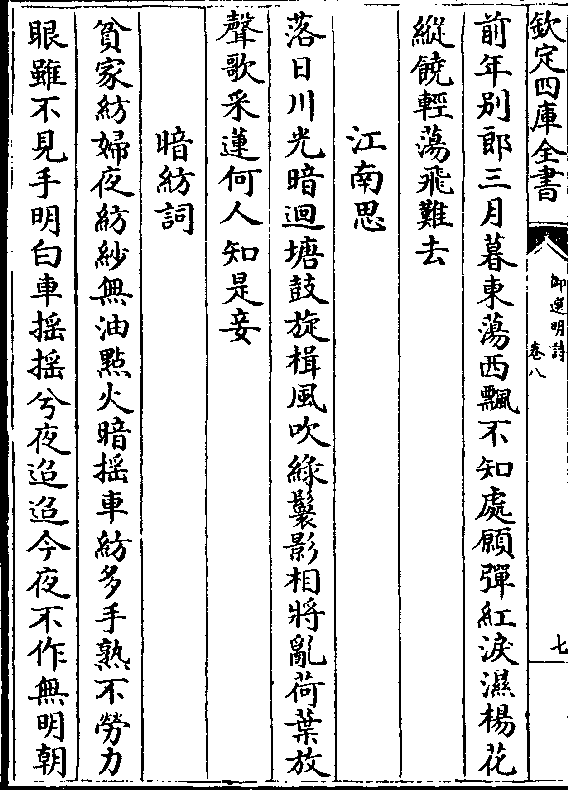 欽定四庫全書
御選明詩
卷八
七
前年别郎三月暮東蕩西飄不知處願彈紅淚濕楊花
縱饒輕蕩飛難去
江南思
落日川光暗迴塘鼓旋楫風吹綠鬟影相將亂荷葉放
聲歌采蓮何人知是妾
暗紡詞
貧家紡婦夜紡紗無油點火暗揺車紡多手熟不勞力
眼雖不見手明白車揺揺兮夜迢迢今夜不作無明朝